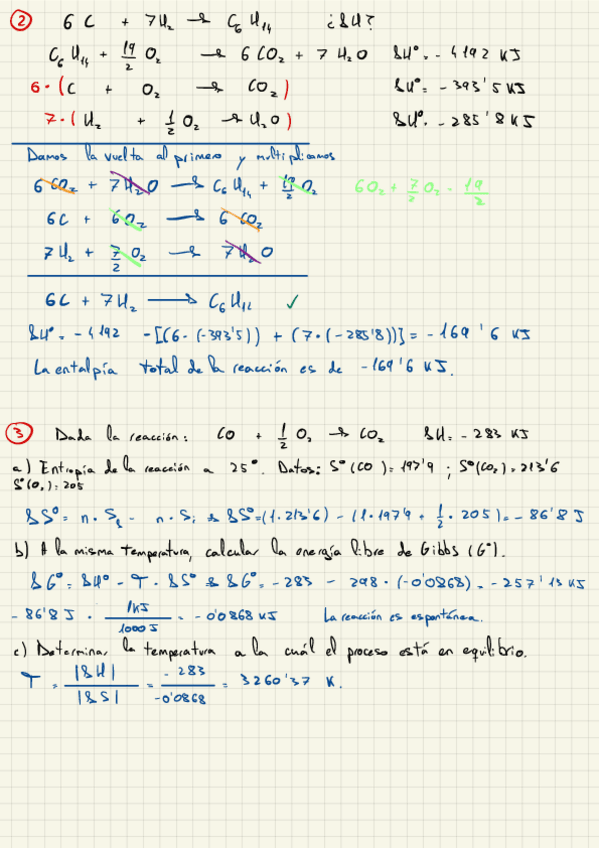 2 6 C + 7H₂ → C₆H₁₄ ¿ΔH?
C₆H₁₄ + 19/2 O₂ → 6 CO₂ + 7 H₂O ΔHº = - 4192 KJ
6·(C + O₂ → CO₂) ΔHº = - 393'5 KJ
7·(H₂ + 1/2 O₂ → H₂O) ΔHº = - 285'8 KJ
Damos la vuelta al primero y multiplicamos
6 CO₂ + 7H₂O → C₆H₁₄ + 19/2 O₂ 6O₂ + 7/2 O₂ = 19/2
6C + 6O₂ → 6 CO₂
7H₂ + 7/2 O₂ → 7H₂O
6C + 7H₂ → C₆H₁₂ ✓
ΔHº = - 4192 - [(6·(-393'5)) + (7·(-285'8))] = - 169'6 KJ
La entalpía total de la reacción es de -169'6 KJ.
3 Dada la reacción: CO + 1/2 O₂ → CO₂ ΔH = - 283 KJ
a) Entropía de la reacción a 25º. Datos: Sº(CO) = 197'9 ; Sº(CO₂) = 213'6
Sº(O₂) = 205
ΔSº = n·Sf - n·Si → ΔSº = (1·213'6) - (1·197'9 + 1/2·205) = - 86'8 J
b) A la misma temperatura, calcular la energía libre de Gibbs (Gº).
ΔGº = ΔHº - T·ΔSº → ΔGº = - 283 - 298·(-0'0868) = - 257'13 KJ
- 86'8 J · 1KJ/1000 J = - 0'0868 KJ La reacción es espontánea.
c) Determinar la temperatura a la cuál el proceso está en equilibrio.
T = |ΔH|/|ΔS| = - 283/-0'0868 = 3260'37 K.